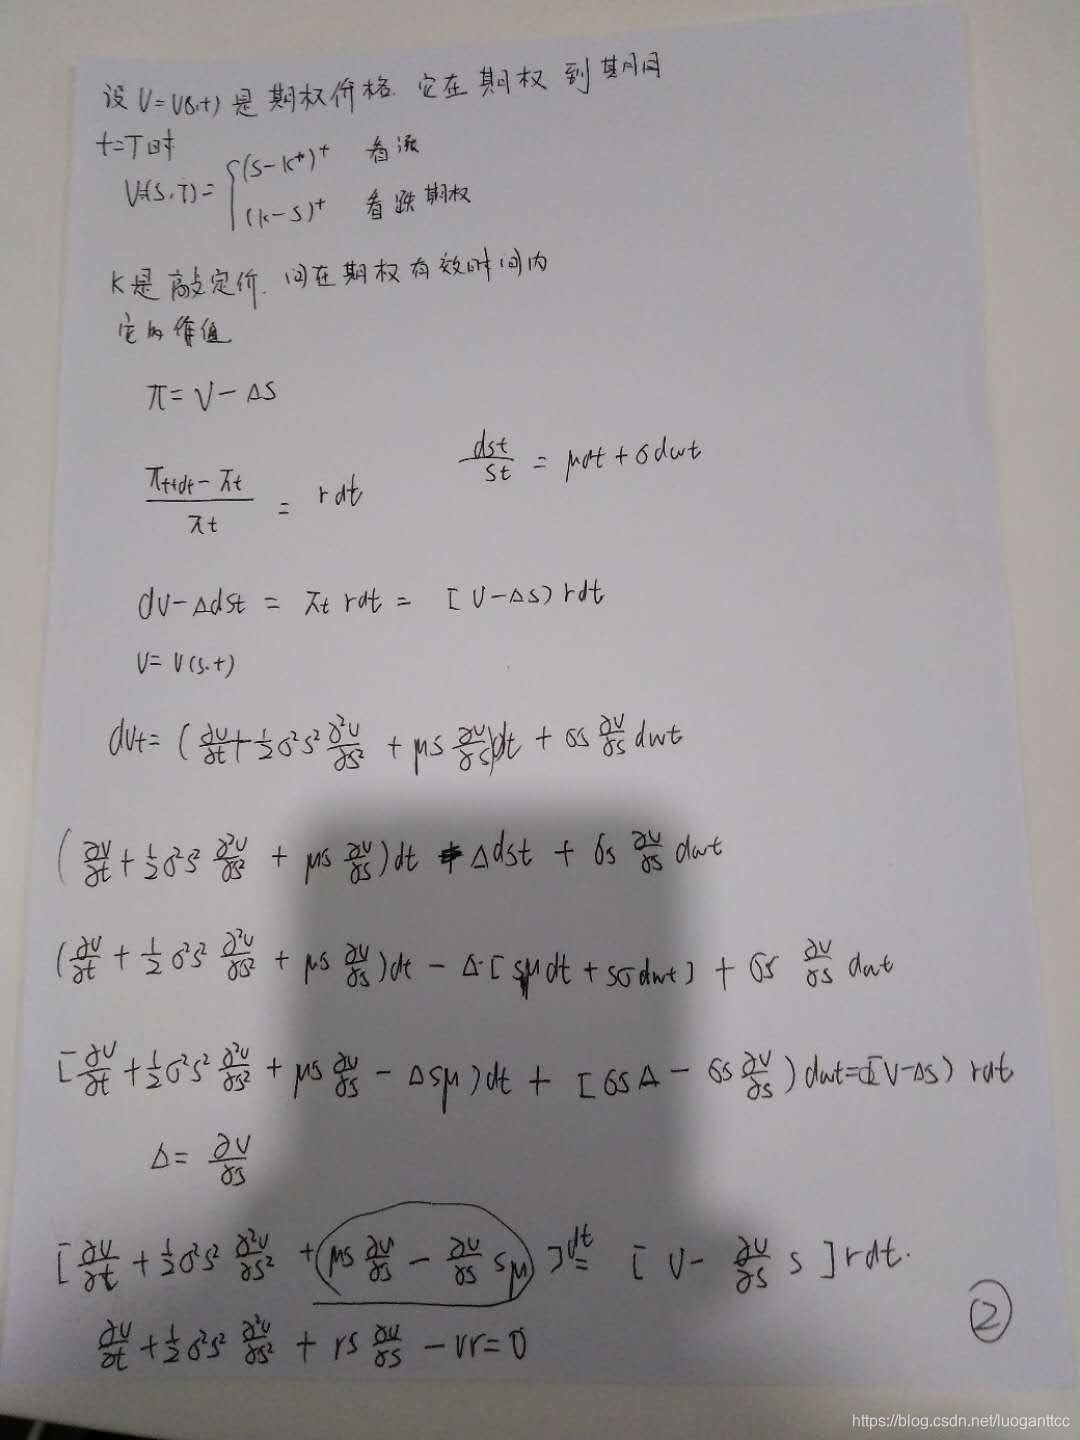 设 V=V(S,t) 是期权价格. 它在期权到期日
t=T时
V(S,T)= { (S-K⁺)⁺ 看涨
(K-S)⁺ 看跌期权
K是敲定价. 问在期权有效时间内
它的价值
π=V-ΔS
dSt/St = μdt+σdwt
(πt+dt - πt)/πt = rdt
dV-ΔdSt = πt rdt = [V-ΔS) rdt
V=V(S.t)
dVt= (∂V/∂t+½σ²S² ∂²V/∂S² + μS ∂V/∂S)dt + σS ∂V/∂S dwt
(∂V/∂t+½σ²S² ∂²V/∂S² + μS ∂V/∂S)dt - ΔdSt + σS ∂V/∂S dwt
(∂V/∂t + ½σ²S² ∂²V/∂S² + μS ∂V/∂S)dt - Δ·[Sμdt+Sσdwt] + σS ∂V/∂S dwt
[∂V/∂t+½σ²S² ∂²V/∂S² + μS ∂V/∂S - ΔSμ)dt + [σSΔ - σS ∂V/∂S)dwt=[V-ΔS) rdt
Δ= ∂V/∂S
[∂V/∂t+½σ²S² ∂²V/∂S² + μS ∂V/∂S - ∂V/∂S Sμ]dt = [V- ∂V/∂S S]rdt.
∂V/∂t+½σ²S² ∂²V/∂S² + rS ∂V/∂S - Vr=0
②
https://blog.csdn.net/luoganttcc